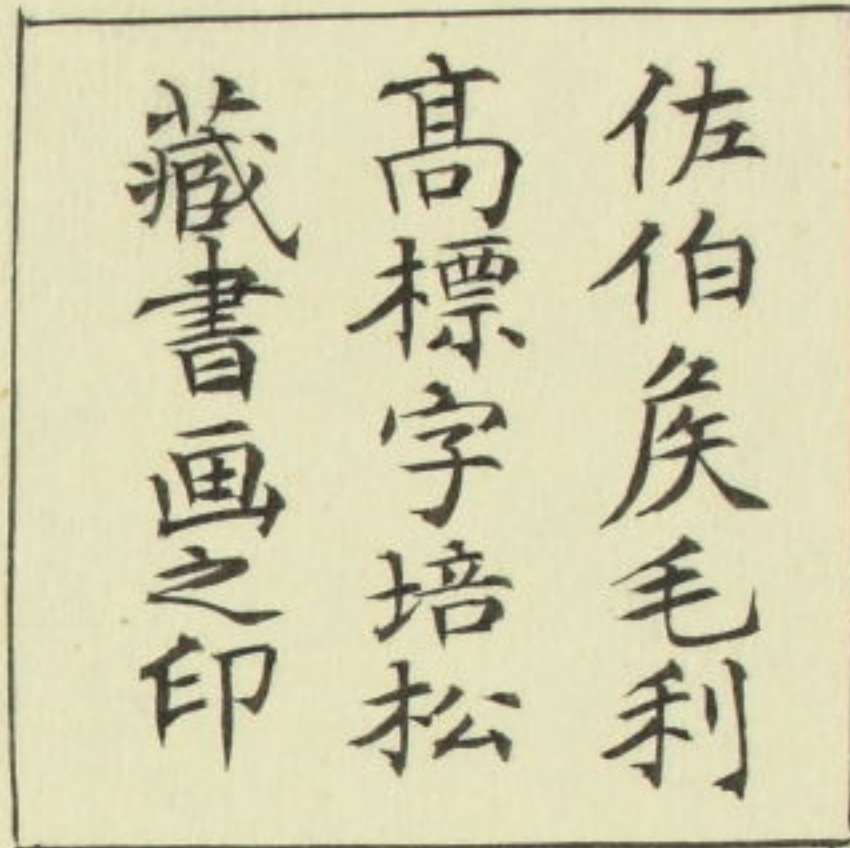 佐伯矦毛利
髙標字培松
藏書画之印